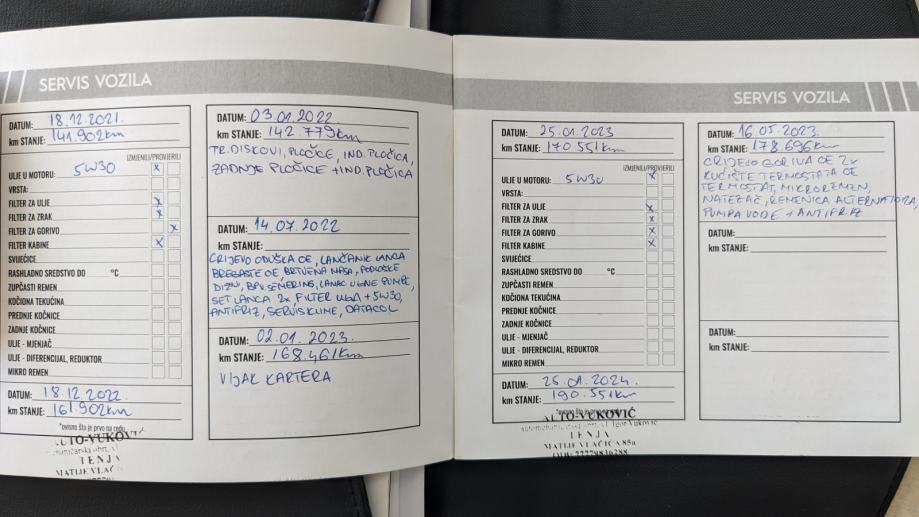 SERVIS VOZILA
DATUM: 18.12.2021.
km STANJE: 141.902km
IZMJENILI/PROVJERILI
ULJE U MOTORU: 5W30 x
VRSTA:
FILTER ZA ULJE x
FILTER ZA ZRAK x
FILTER ZA GORIVO x
FILTER KABINE x
SVIJEĆICE
RASHLADNO SREDSTVO DO °C
ZUPČASTI REMEN
KOČIONA TEKUĆINA
PREDNJE KOČNICE
ZADNJE KOČNICE
ULJE - MJENJAČ
ULJE - DIFERENCIJAL, REDUKTOR
MIKRO REMEN
DATUM: 18.12.2022.
km STANJE: 161.902km
*ovisno što je prvo na redu
AUTO-VUKOVIĆ
TENJA
DATUM: 03.01.2022.
km STANJE: 142.779km
PR. DISKOVI, PLOČICE, IND. PLOČICA,
ZADNJE PLOČICE + IND. PLOČICA
DATUM: 14.07.2022
km STANJE:
CRIJEVO ODUŠKA OE, LANČANIK
BREGASTE OE, BRTVENA MASA, PODLOŠKE
DIZNI, SEMERING, LANAC ULJNE PUMPE,
SET LANCA 2x, FILTER ULJA + 5W30,
ANTIFRIZ, SERVIS KLIME, DATACOL
DATUM: 02.01.2023.
km STANJE: 168.461km
VIJAK KARTERA
SERVIS VOZILA
DATUM: 25.01.2023
km STANJE: 170 551km
IZMJENILI/PROVJERILI
ULJE U MOTORU: 5W30 x
VRSTA:
FILTER ZA ULJE x
FILTER ZA ZRAK x
FILTER ZA GORIVO x
FILTER KABINE x
SVIJEĆICE
RASHLADNO SREDSTVO DO °C
ZUPČASTI REMEN
KOČIONA TEKUĆINA
PREDNJE KOČNICE
ZADNJE KOČNICE
ULJE - MJENJAČ
ULJE - DIFERENCIJAL, REDUKTOR
MIKRO REMEN
DATUM: 25.01.2024.
km STANJE: 190.551km
*ovisno što je prvo na
AUTO-VUKOVIĆ
Igor Vuković
TENJA
MATIJE VLAČIĆA 85a
DATUM: 16.05.2023.
km STANJE: 178 696km
CRIJEVO GORIVA OE 2x
KUĆIŠTE TERMOSTATA OE
TERMOSTAT, MIKROREMEN,
NATEZAČ, REMENICA ALTERNATORA,
PUMPA VODE + ANTIFRIZ
DATUM:
km STANJE:
DATUM:
km STANJE: